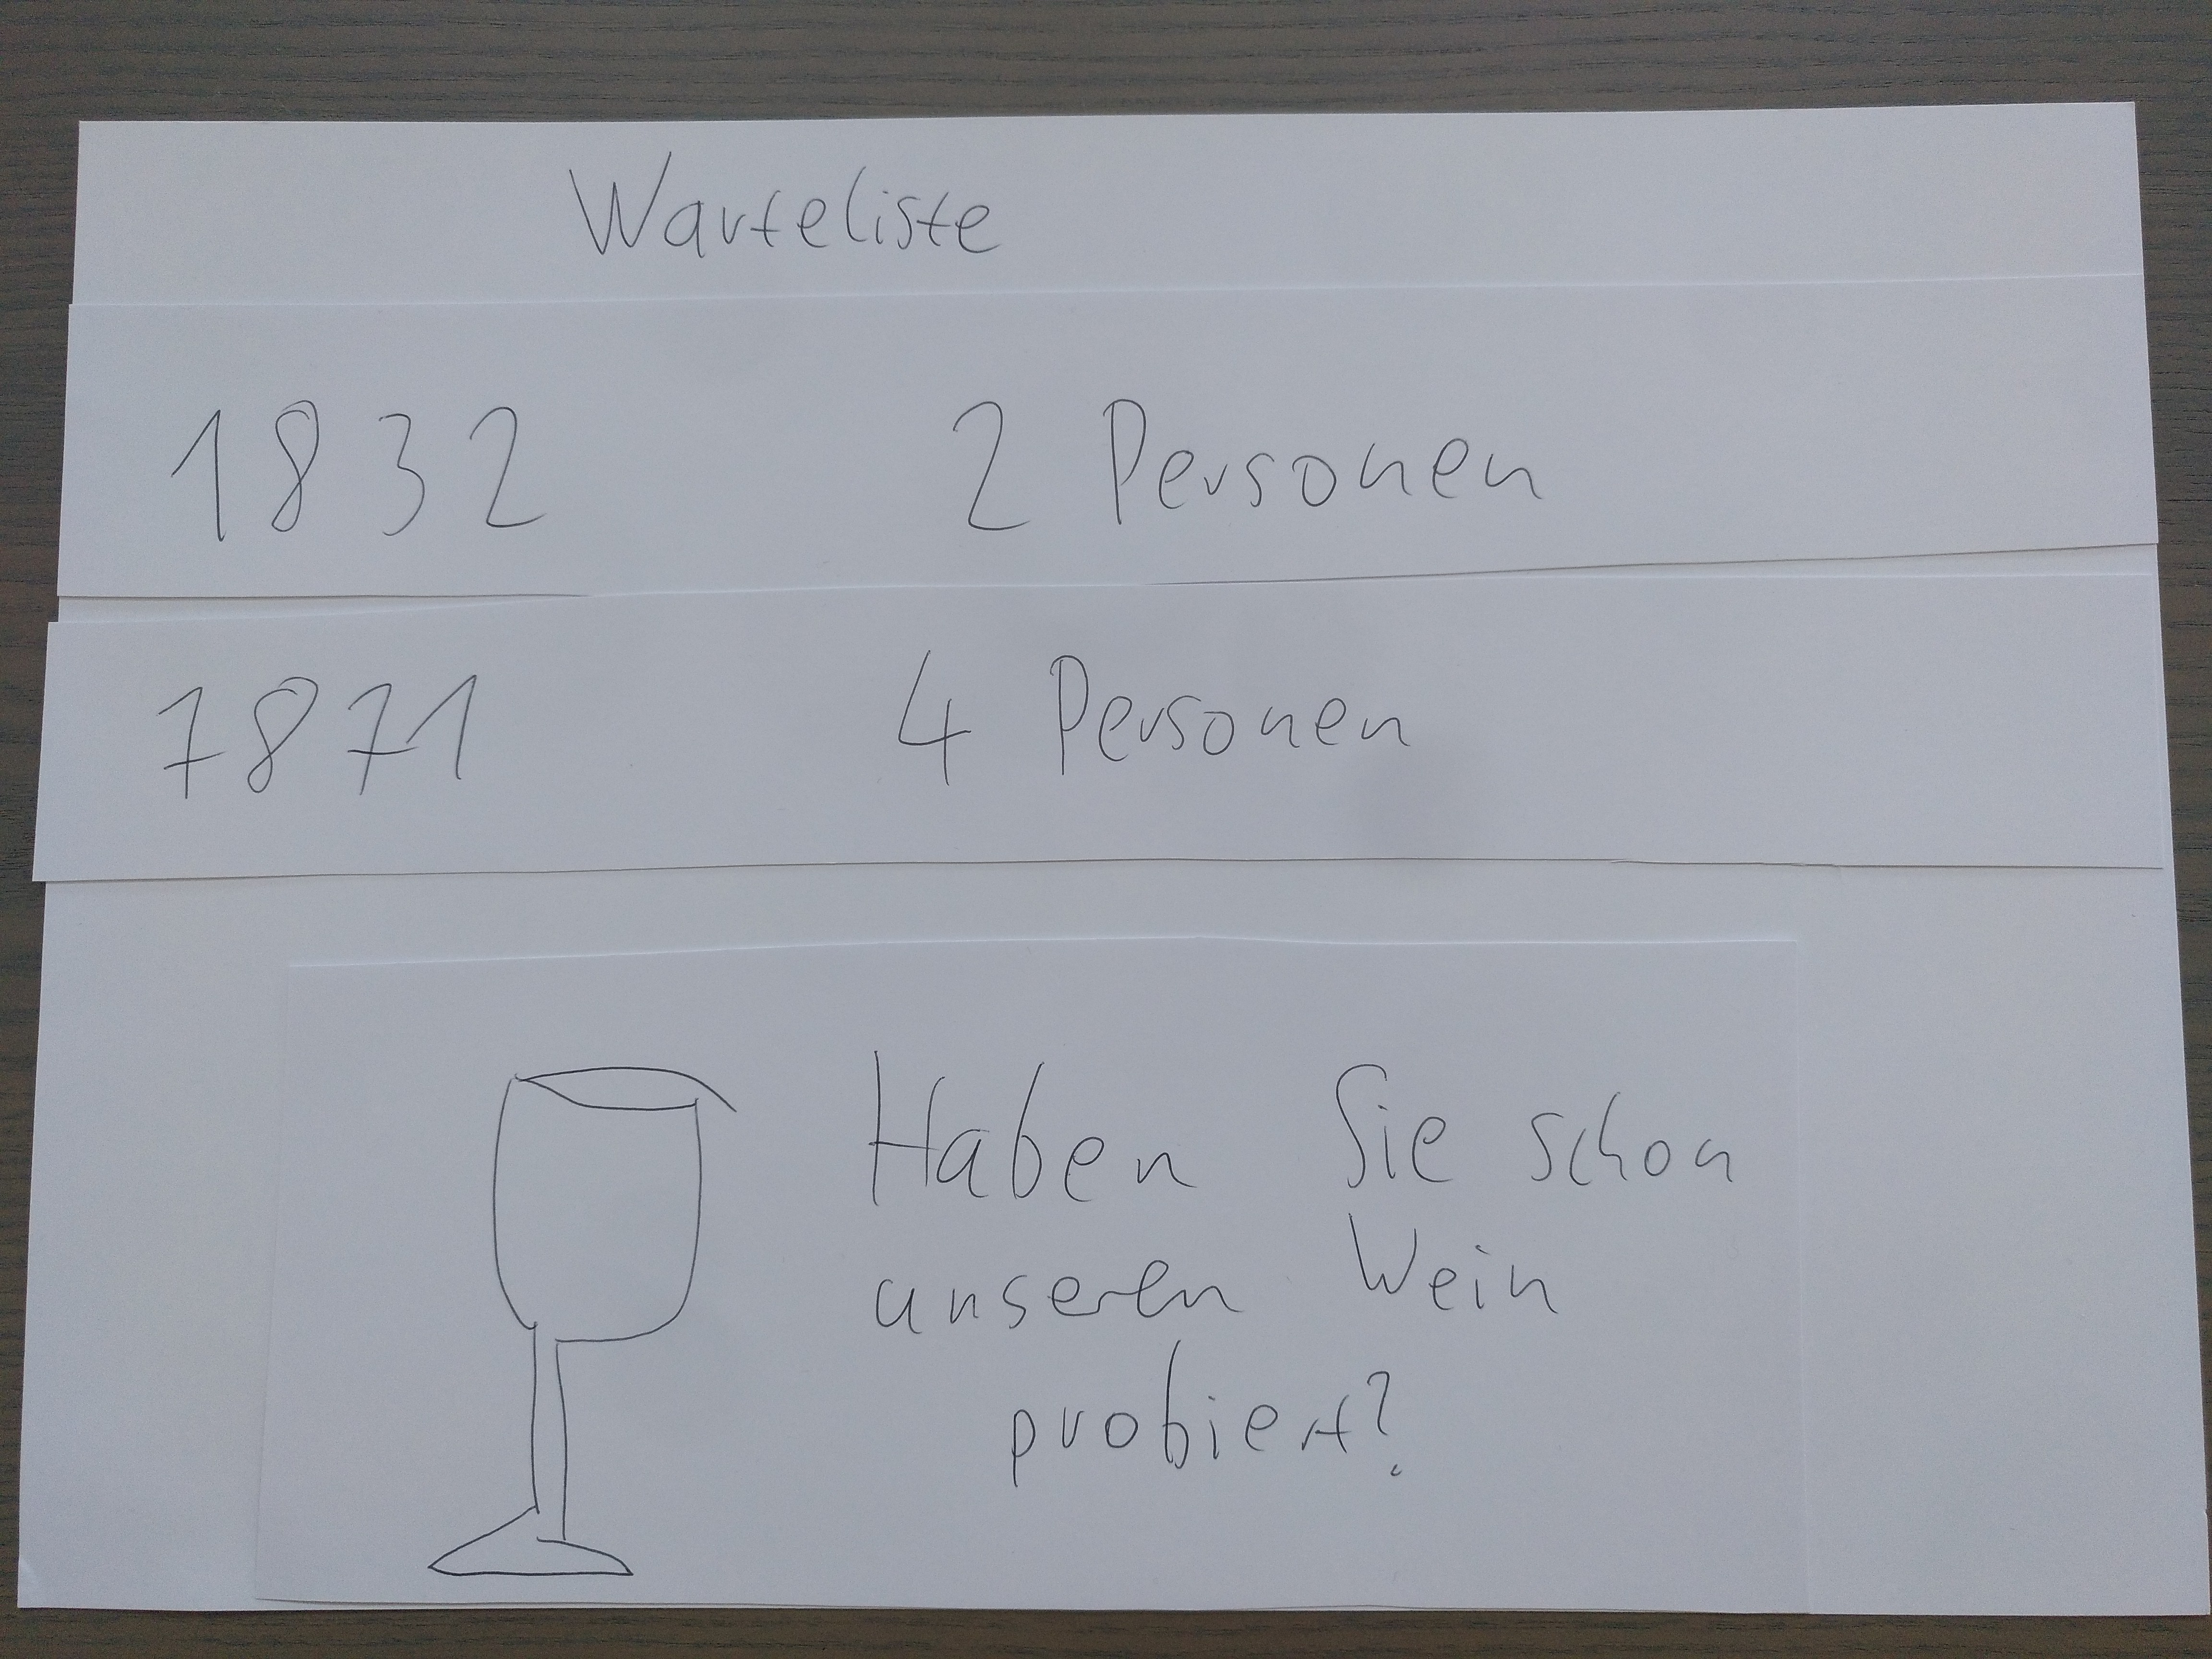 Warteliste
1832 2 Personen
7871 4 Personen
Haben Sie schon
unseren Wein
probiert?